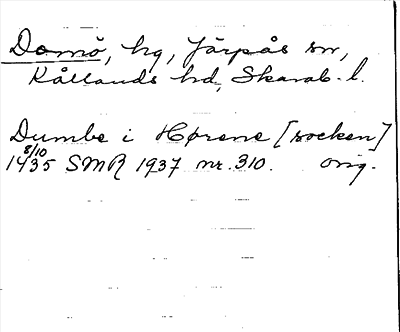 Domö, hg, Järpås sn,
Kållands hd, Skarab. l.
Dumbe i Hørene [socken]
8/10
1435 SMR 1937 nr. 310. orig.